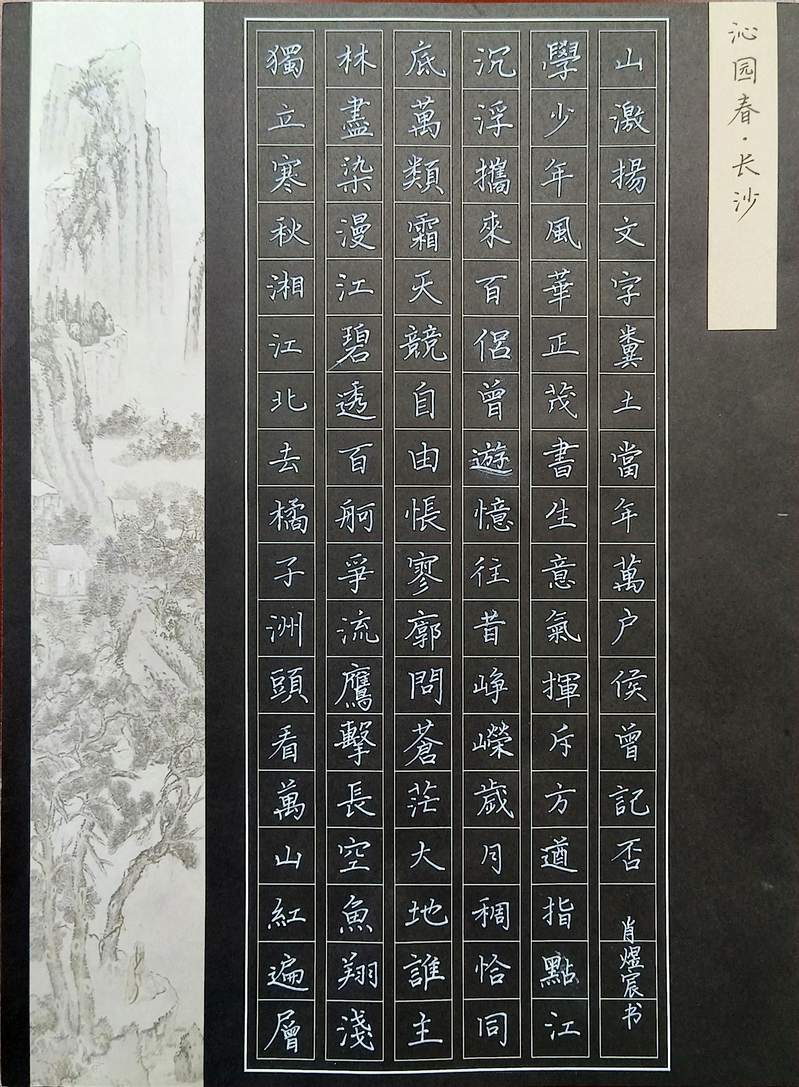 沁园春·长沙
獨立寒秋湘江北去橘子洲頭看萬山紅遍層
林盡染漫江碧透百舸爭流鷹擊長空魚翔淺
底萬類霜天競自由悵寥廓問蒼茫大地誰主
沉浮攜來百侶曾遊憶往昔崢嶸歲月稠恰同
學少年風華正茂書生意氣揮斥方遒指點江
山激揚文字糞土當年萬户侯曾記否
肖煜宸书